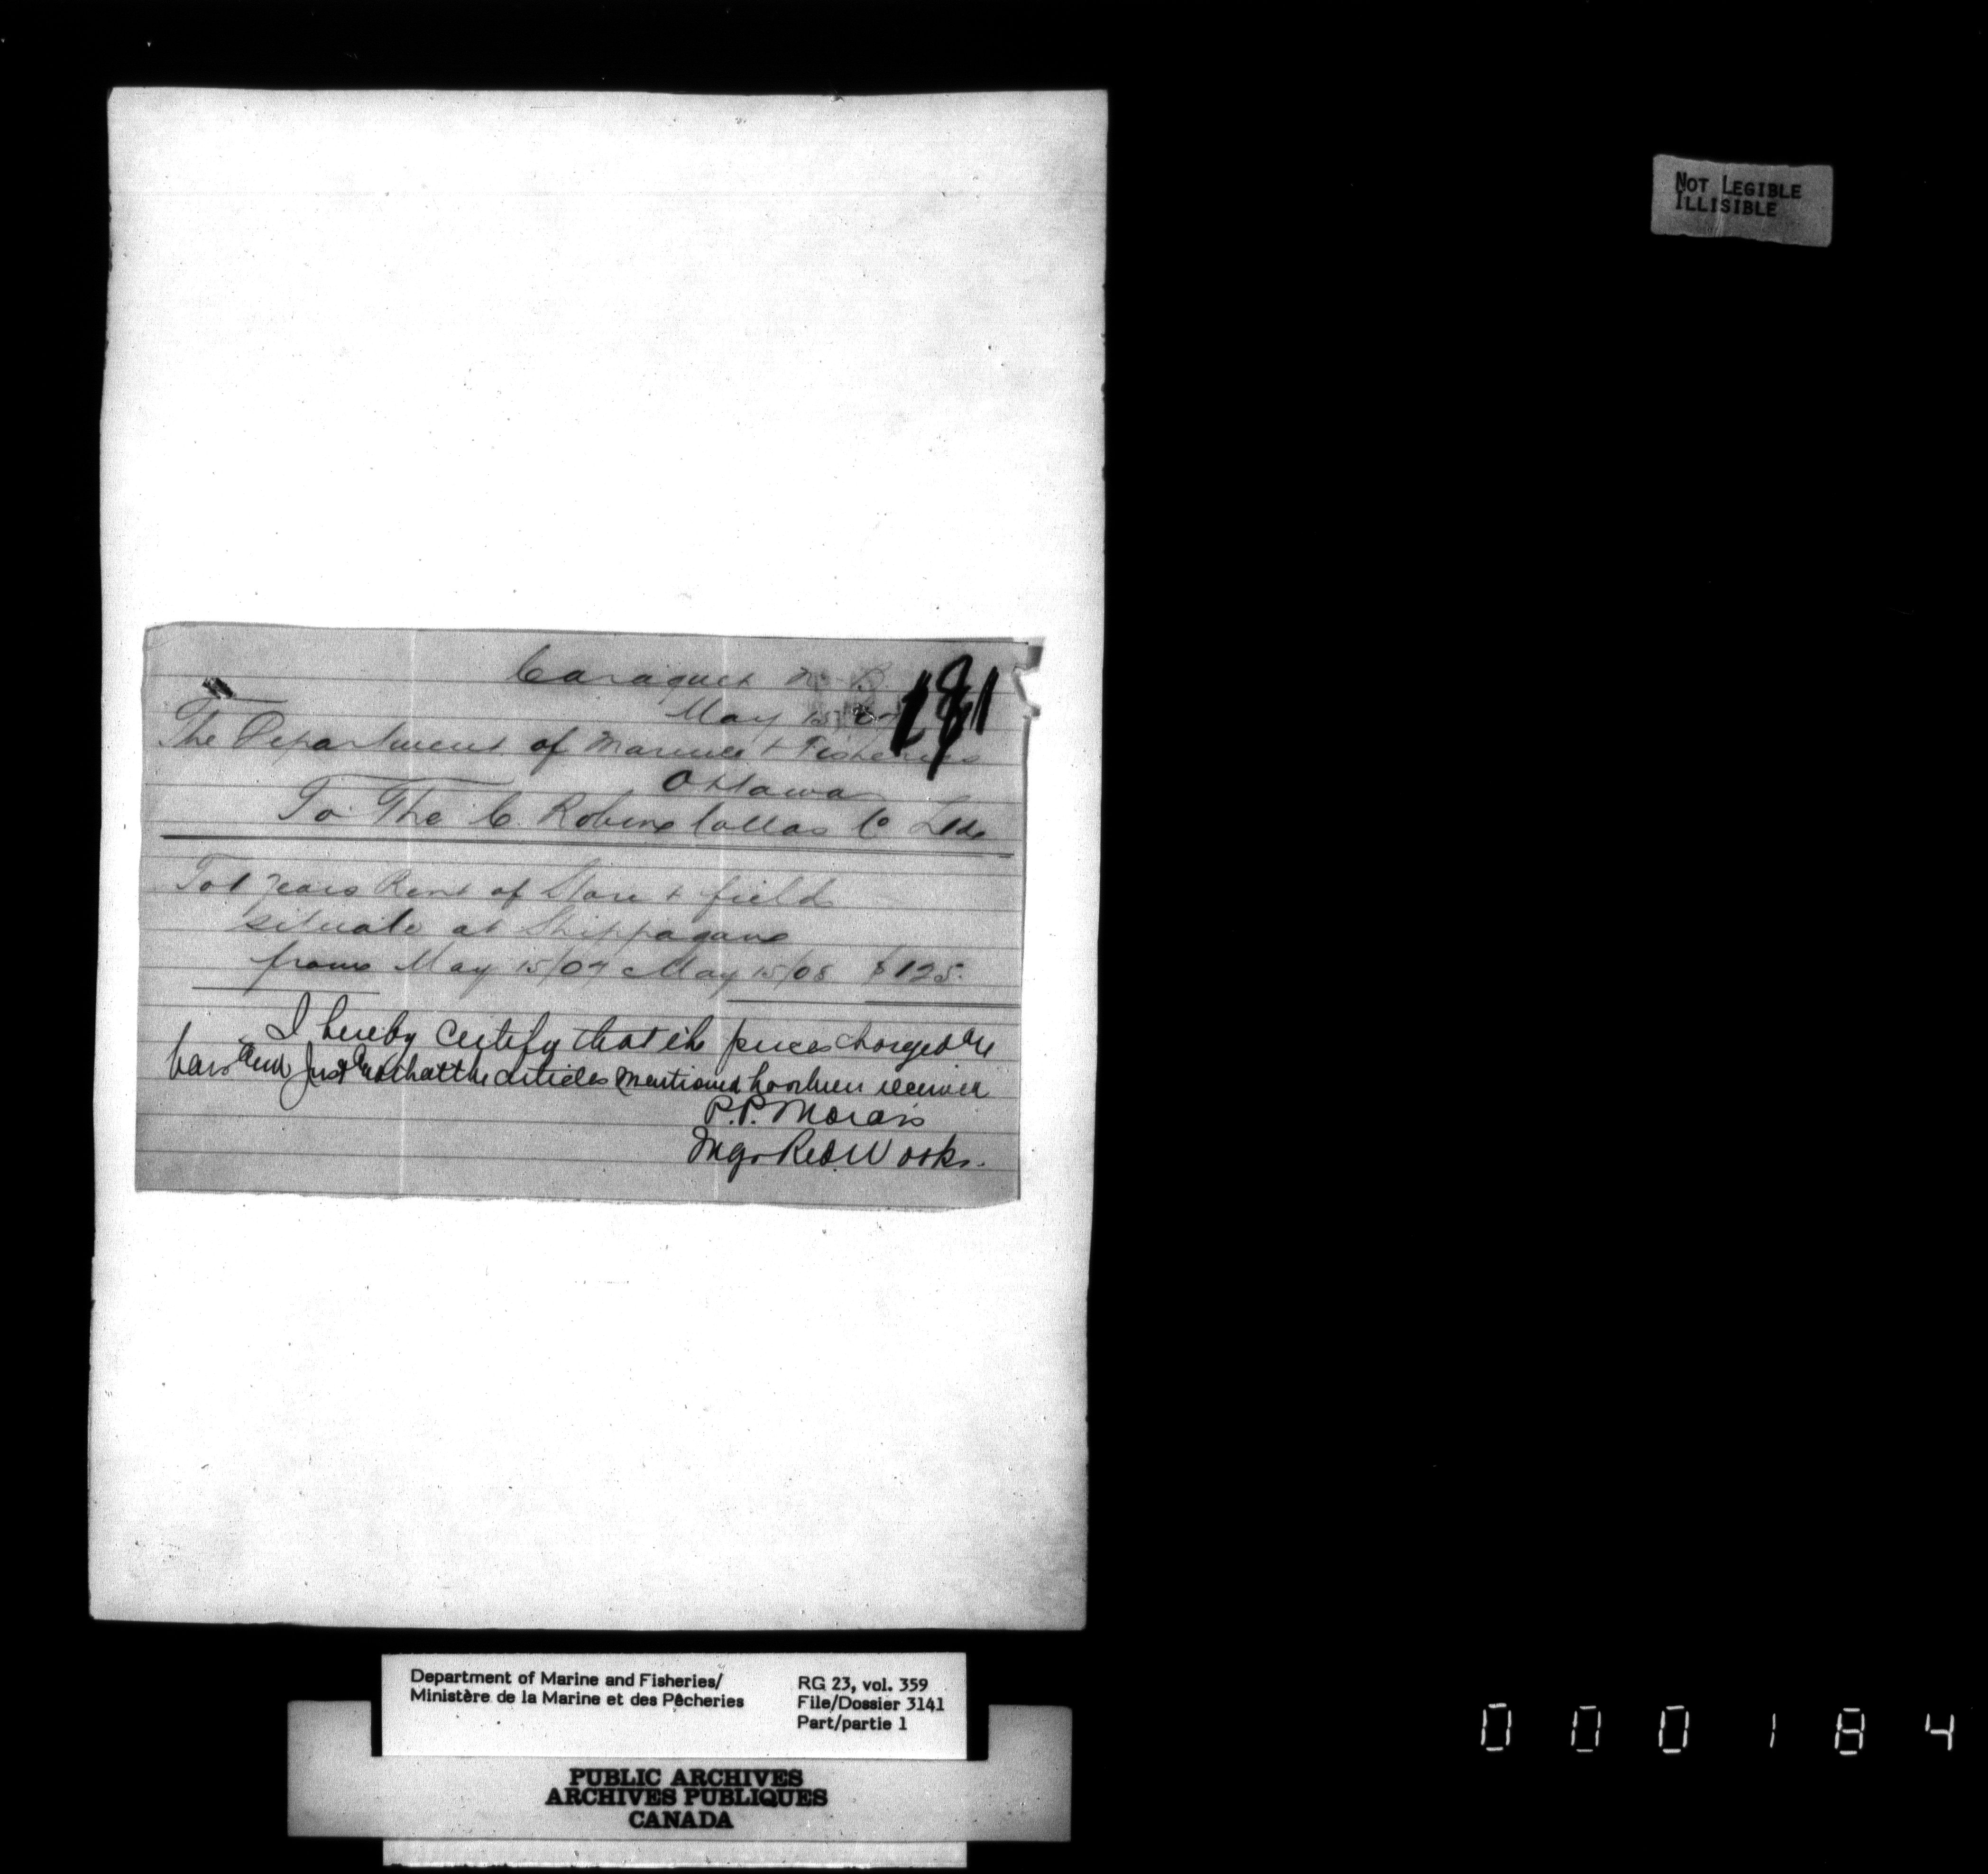 NOT LEGIBLE
ILLISIBLE
Caraquet N. B.
May 15/07
181
The Department of Marine & Fisheries
Ottawa
To The C. Robin Collas Co Ltd
To 1 years Rent of Store & field
situate at Shippagan
from May 15/07 May 15/08 $125.
I hereby certify that the prices charged are
and Just and that the articles mentioned have been received
P.P. Morais
Mgr Red. Works.
Department of Marine and Fisheries/
Ministère de la Marine et des Pêcheries
RG 23, vol. 359
File/Dossier 3141
Part/partie 1
PUBLIC ARCHIVES
ARCHIVES PUBLIQUES
CANADA
000184